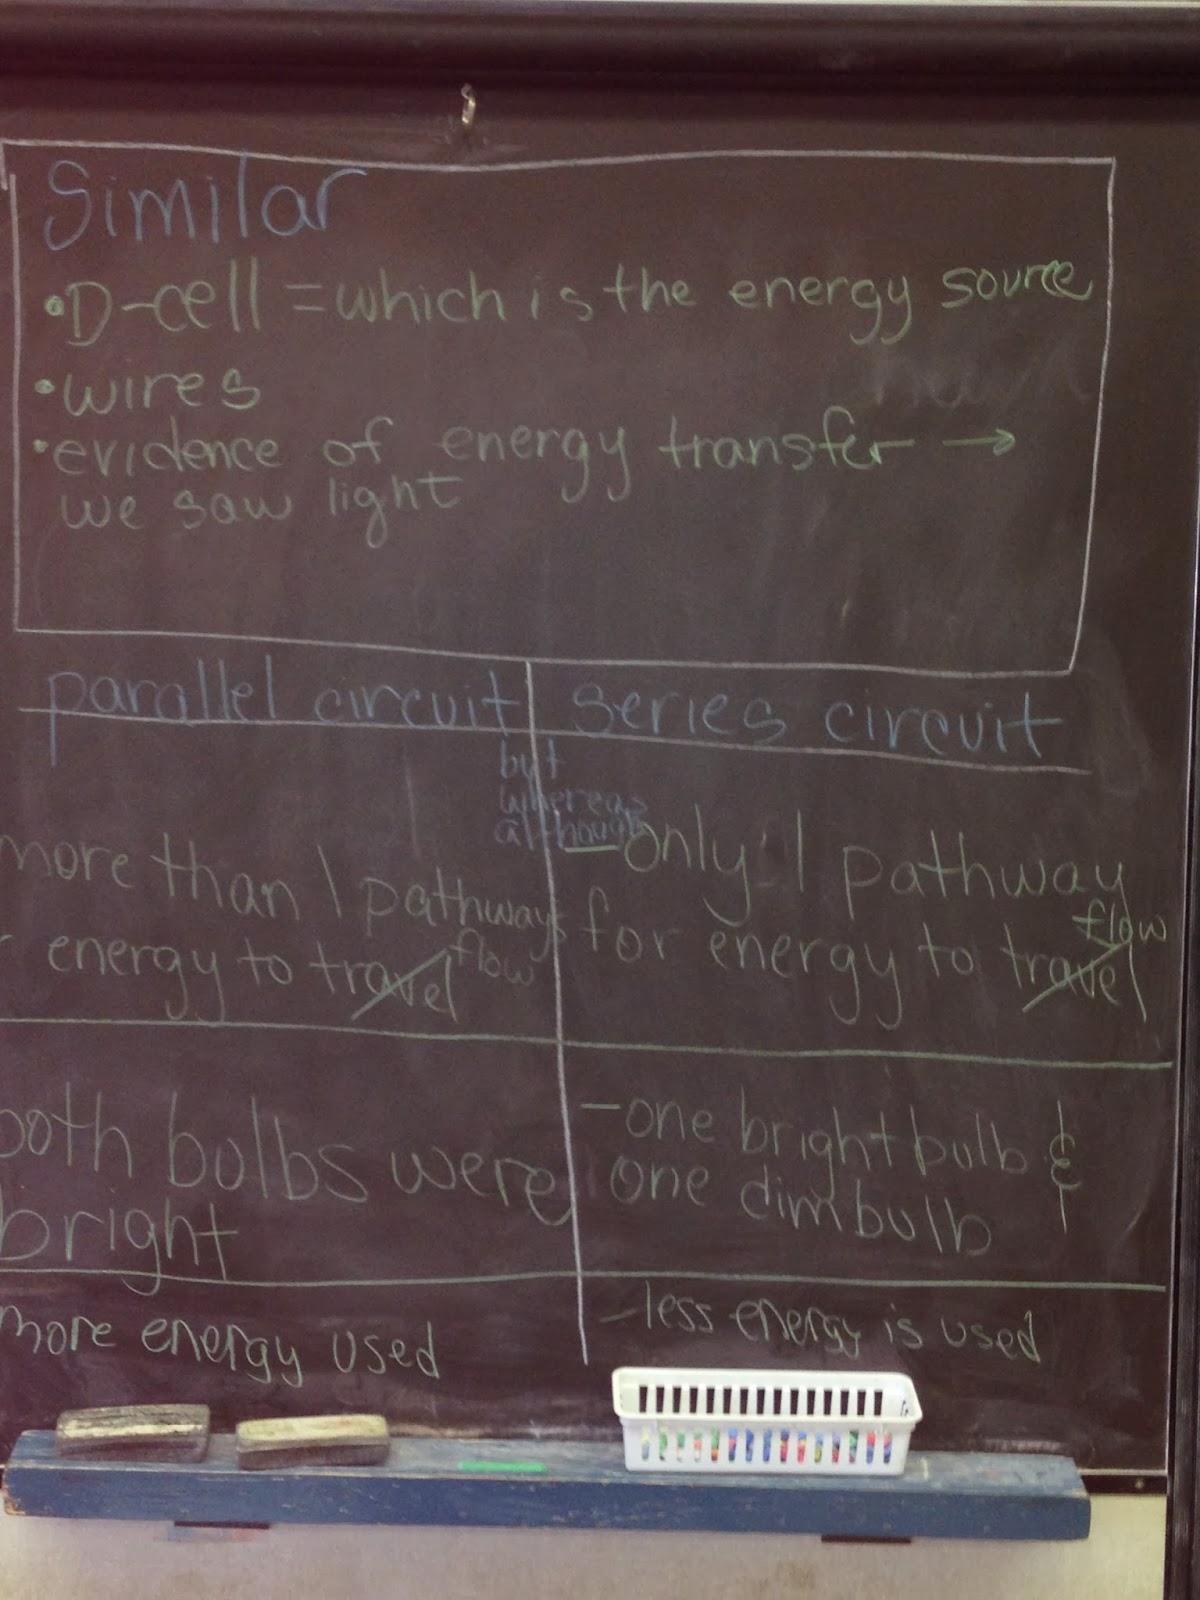 Similar
•D-cell = which is the energy source
•wires
•evidence of energy transfer →
we saw light
parallel circuit
series circuit
but
whereas
although
more than 1 pathways
energy to travel flow
-only 1 pathway
for energy to travel flow
both bulbs were
bright
-one bright bulb &
one dim bulb
more energy used
-less energy is used